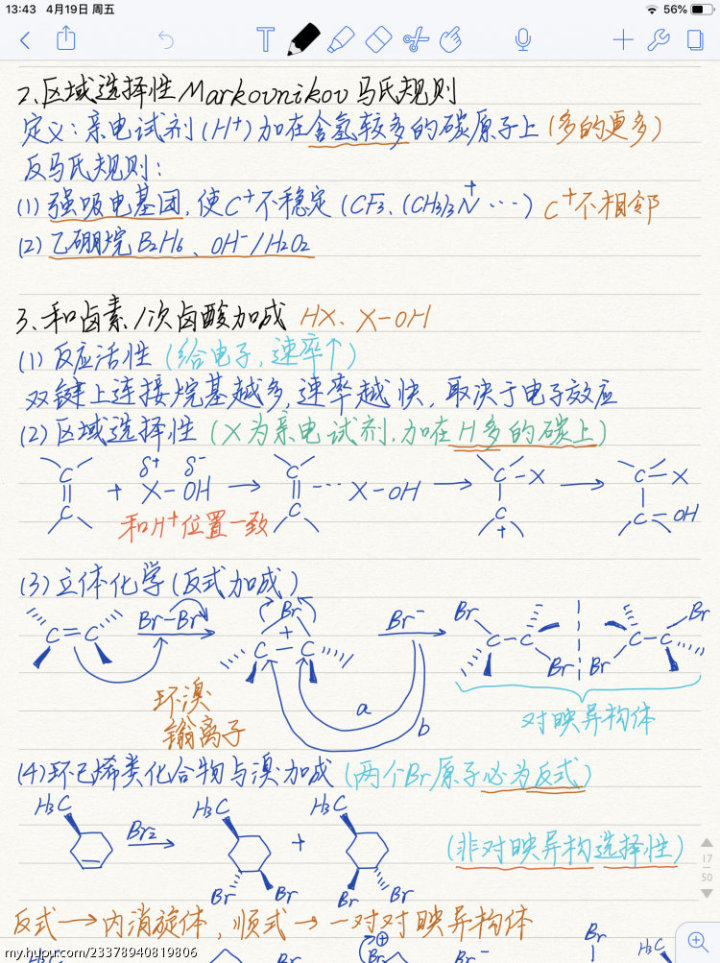 13:43 4月19日 周五
56%
2、区域选择性 Markovnikov 马氏规则
定义：亲电试剂(H⁺)加在含氢较多的碳原子上(多的更多)
反马氏规则：
(1) 强吸电基团，使C⁺不稳定 (CF₃、(CH₃)₃N⁺ …) C⁺不相邻
(2) 乙硼烷 B₂H₆、OH⁻/H₂O₂
3、和卤素/次卤酸加成 HX、X-OH
(1) 反应活性 (给电子，速率↑)
双键上连接烷基越多，速率越快，取决于电子效应
(2) 区域选择性 (X为亲电试剂，加在H多的碳上)
C=C + δ⁺ δ⁻ X-OH → C=C ---X-OH → C-X C+ → C=X C=OH
和H⁺位置一致
(3) 立体化学 (反式加成)
C=C Br-Br Br + C-C Br⁻ Br C-C Br Br C-C Br
环溴
鎓离子
a
b
对映异构体
(4) 环己烯类化合物与溴加成 (两个Br原子必为反式)
H₃C Br₂ → H₃C Br Br + H₃C Br Br
(非对映异构选择性)
17
50
反式→内消旋体，顺式→一对对映异构体
my.hupu.com/23378940819806
Br⊕ Br⁻ Br H₃C